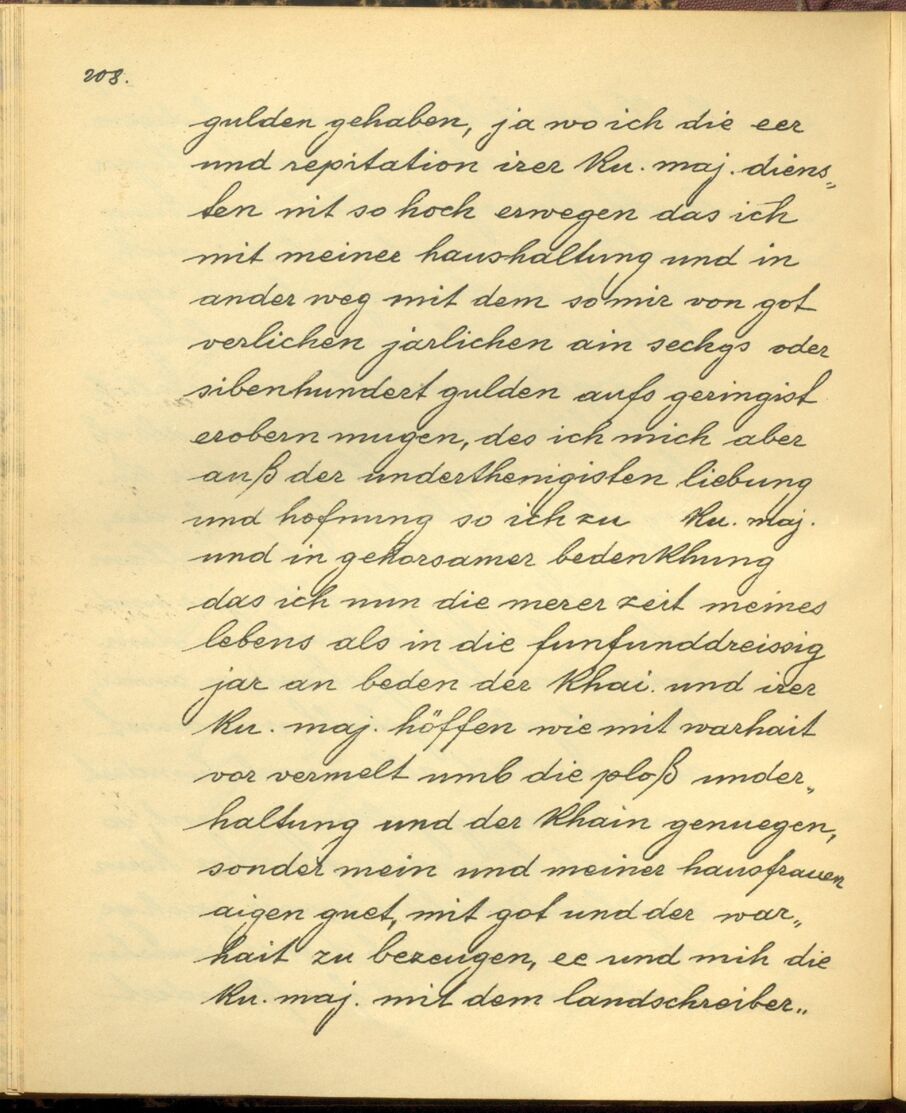 208.
gulden gehaben, ja wo ich die eer
und repitation irer Ku. maj. diens„
ten nit so hoch erwegen das ich
mit meiner haushaltung und in
ander weg mit dem so mir von got
verlichen jarlichen ain sechgs oder
sibenhundert gulden aufs geringist
erobern mugen, des ich mich aber
auß der underthenigisten liebung
und hofnung so ich zu Ku. maj.
und in gehorsamer bedenkhung
das ich nun die merer zeit meines
lebens als in die funfunddreissig
jar an beden der Khai. und irer
Ku. maj. höffen wie mit warhait
vor vermelt umb die ploß under„
haltung und der Khain genuegen,
sonder mein und meiner hausfrauen
aigen guet, mit got und der war„
hait zu bezeugen, ee und mih die
Ku. maj. mit dem landschreiber„